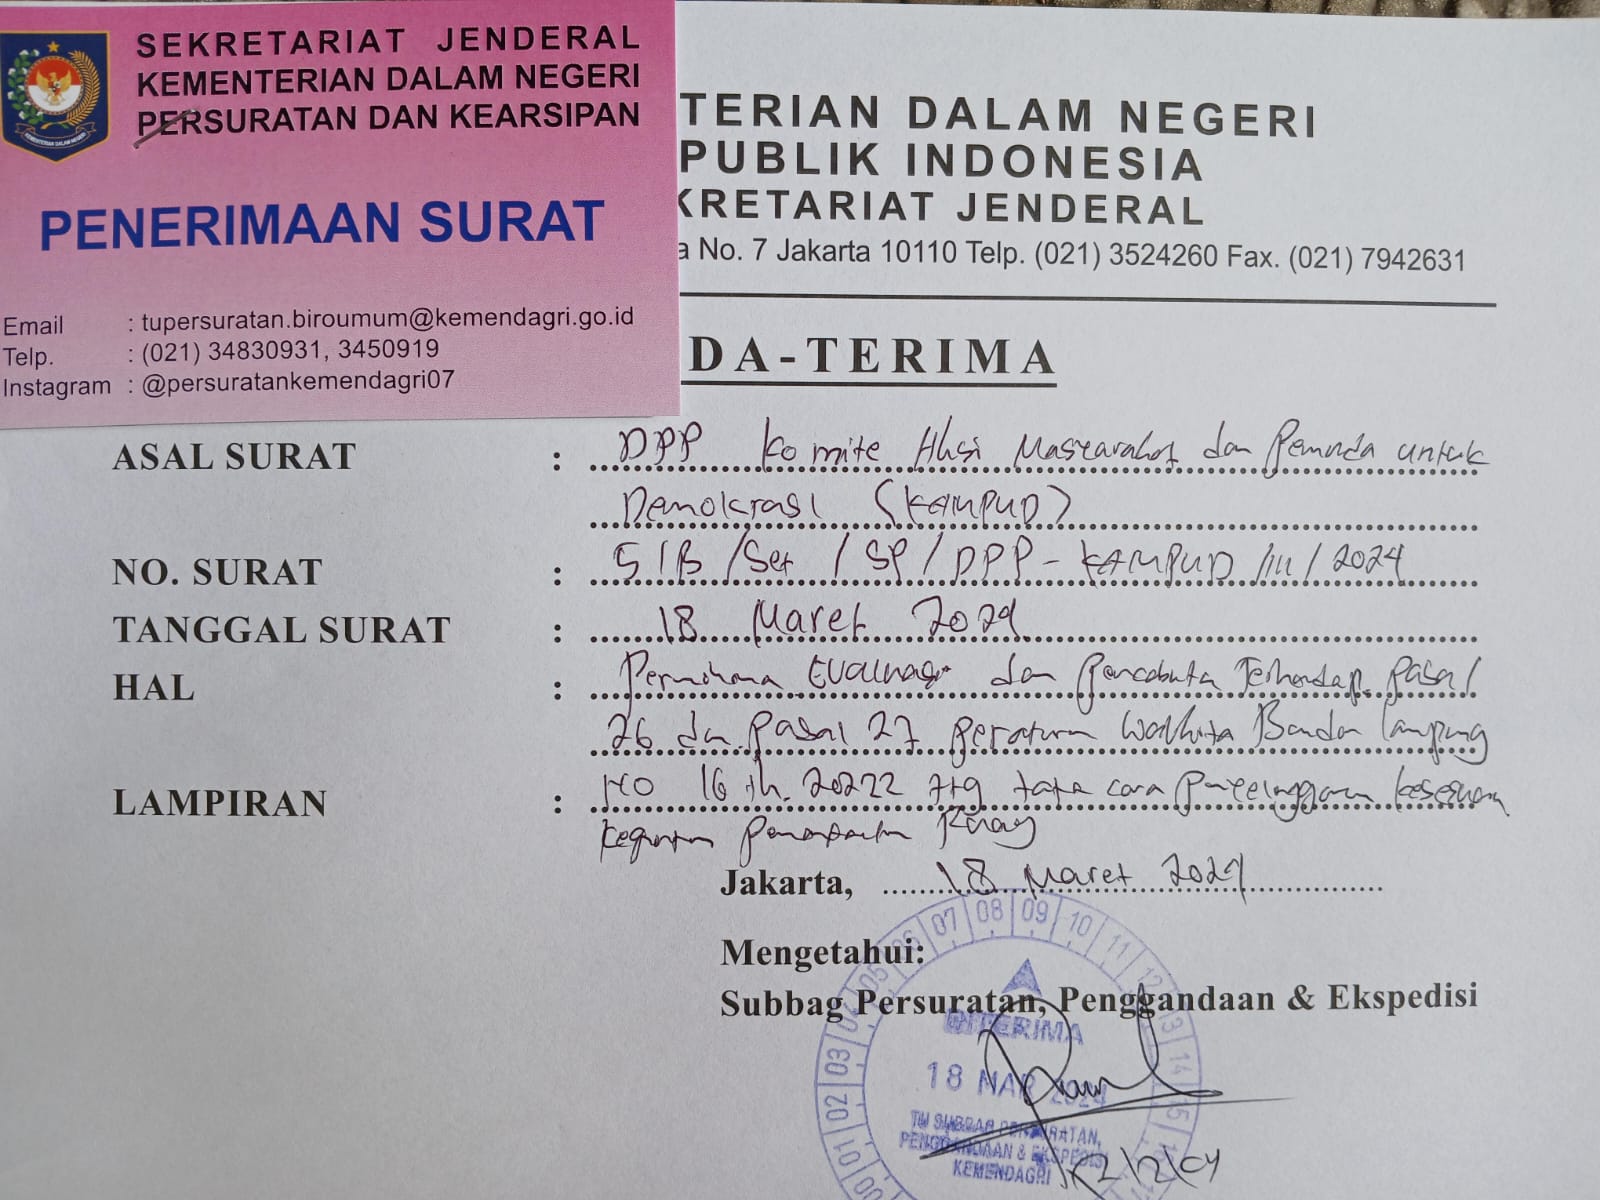 SEKRETARIAT JENDERAL
KEMENTERIAN DALAM NEGERI
PERSURATAN DAN KEARSIPAN
PENERIMAAN SURAT
Email : tupersuratan.biroumum@kemendagri.go.id
Telp. : (021) 34830931, 3450919
Instagram : @persuratankemendagri07
KEMENTERIAN DALAM NEGERI
TERIAN DALAM NEGERI
PUBLIK INDONESIA
KRETARIAT JENDERAL
a No. 7 Jakarta 10110 Telp. (021) 3524260 Fax. (021) 7942631
DA-TERIMA
ASAL SURAT : DPP Komite Aksi Masyarakat dan Pemuda untuk
Demokrasi (KAMPUD)
NO. SURAT : 51B/Set / SP/DPP-KAMPUD/III/2024
TANGGAL SURAT : 18 Maret 2024
HAL : dan Terhadap Pasal
26 dan Pasal 27 Peraturan Walikota Bandar Lampung
LAMPIRAN : NO 16 th. 20222 ttg tata cara
Ruang
Jakarta, 18 Maret 2024
Mengetahui:
Subbag Persuratan, Penggandaan & Ekspedisi
00 01 02 03 04 05 06 07 08 09 10 11 12 13 14 15
DITERIMA
18 MAR 2024
TU SUBBAG PERSURATAN,
PENGGANDAAN & EKSPEDISI
KEMENDAGRI